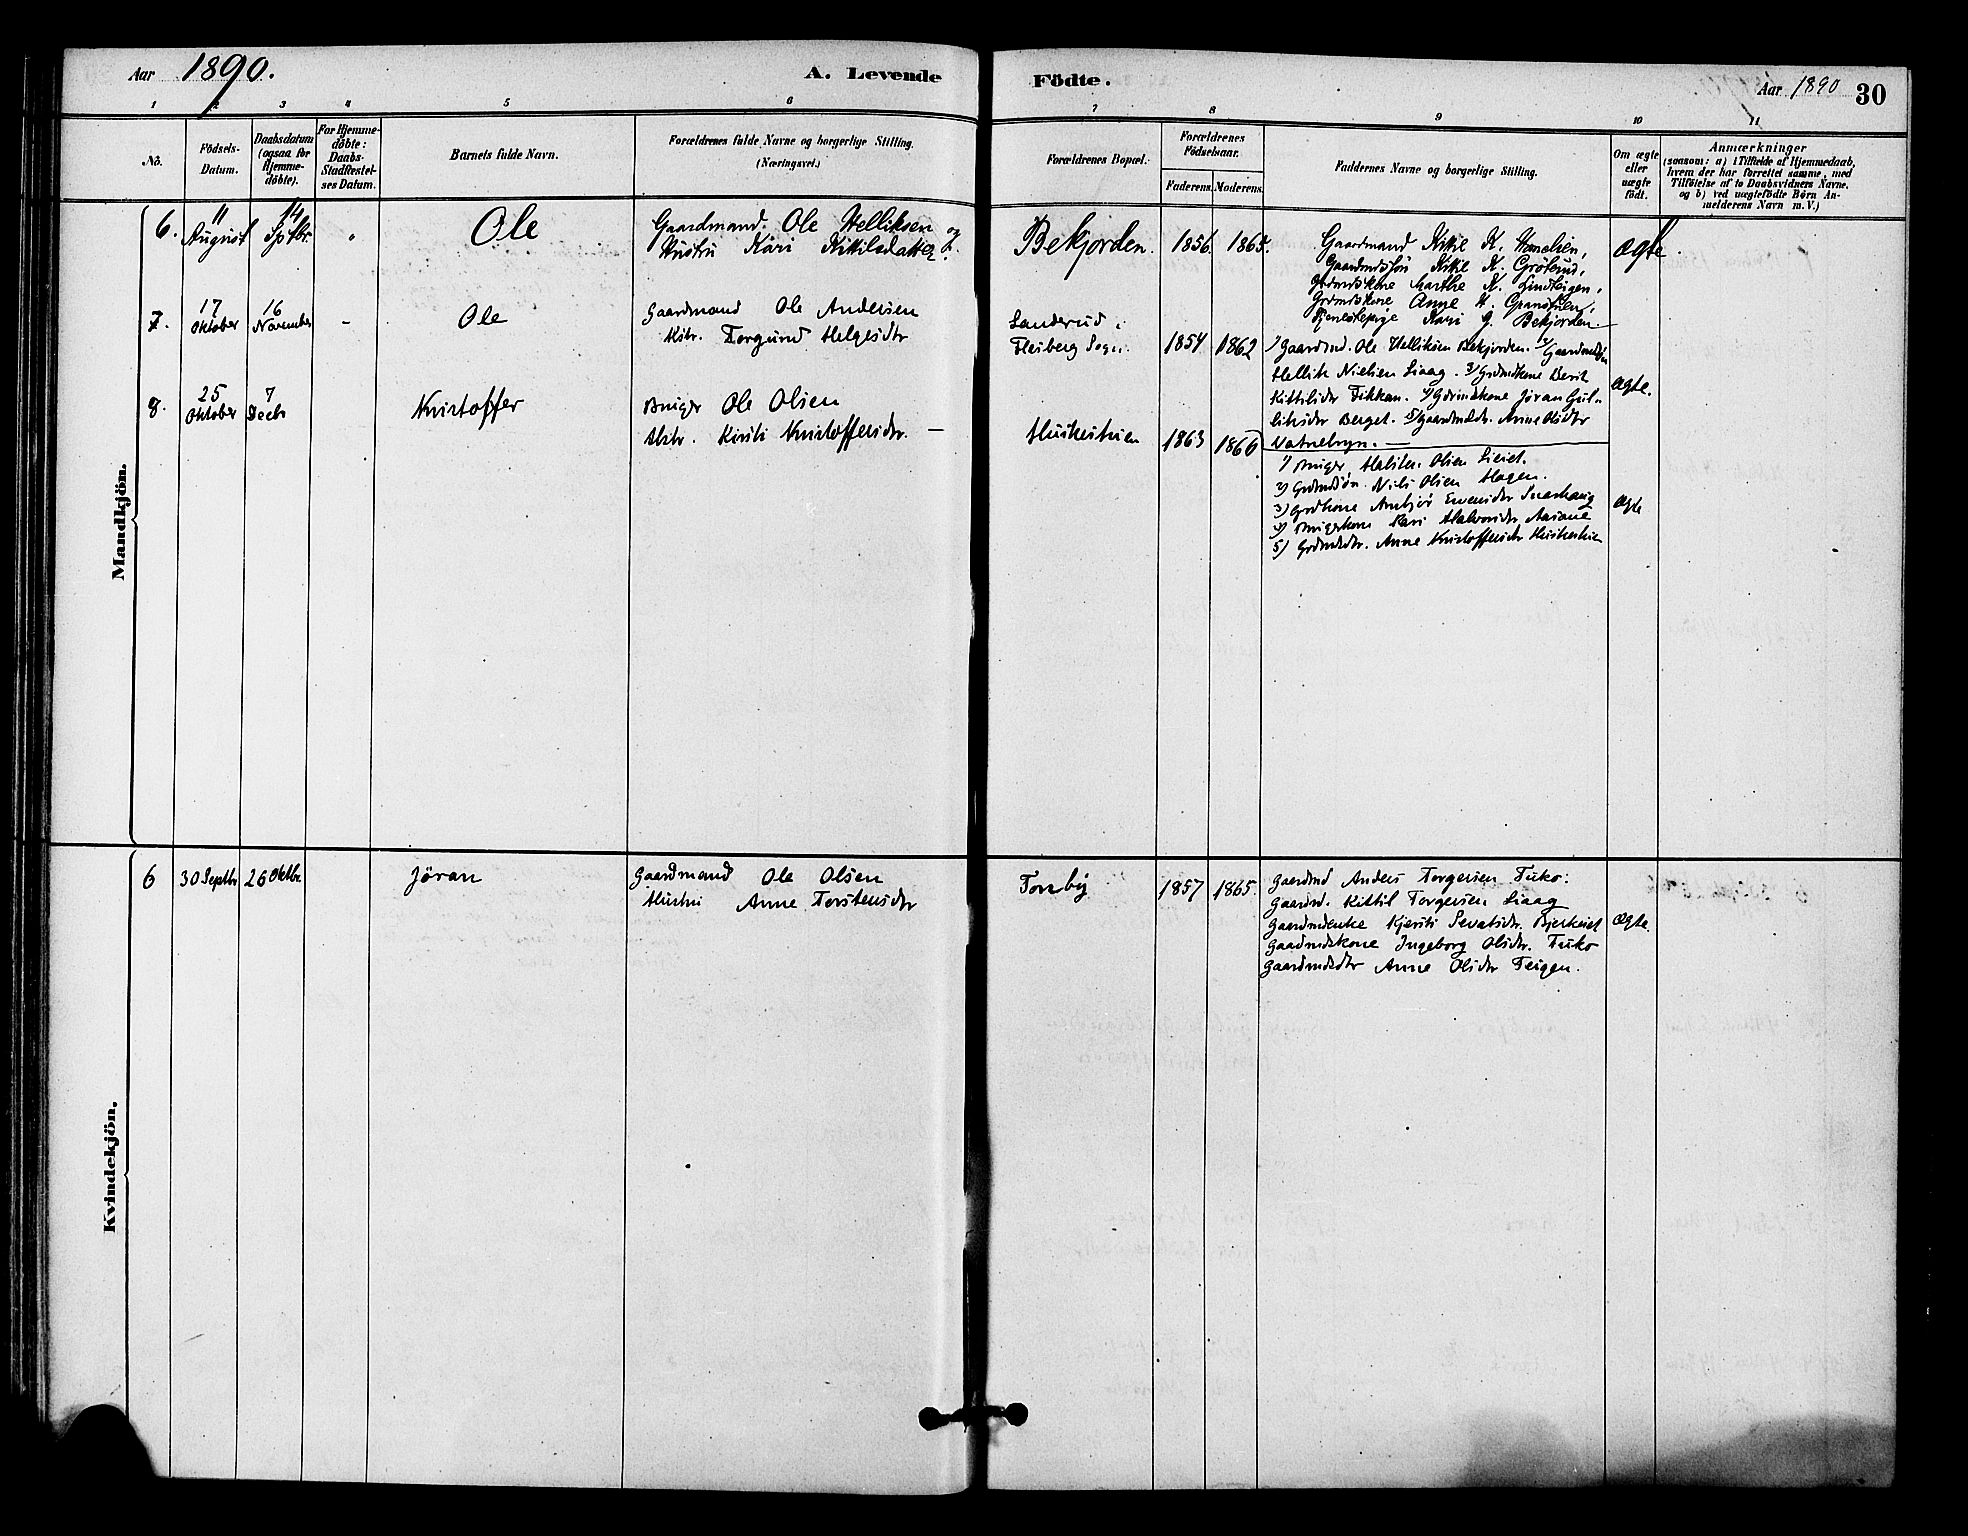 Aar 1890.
A. Levende
Födte.
Aar 1890
30
1 2 3 4 5 6 7 8 9 10 11
No.
Födsels-
Datum.
Daabsdatum
(ogsaa for
Hjemme-
døbte).
For Hjemme-
döbte:
Daabs-
Stadfæstel-
ses Datum.
Barnets fulde Navn.
Forældrenes fulde Navne og borgerlige Stilling.
(Næringsvei.)
Forældrenes Bopæl.
Forældrenes
Födselsaar.
Faderens. Moderens.
Faddernes Navne og borgerlige Stilling.
Om ægte
eller
uægte
födt.
Anmærkninger
(saasom: a) i Tilfælde af Hjemmedaab,
hvem der har forrettet samme, med
Tilföielse af to Daabsvidners Navne,
og b) ved uægtefödte Börn An-
melderens Navn m.V.)
Mandkjön.
6.
11
August
14
Sptbr.
"
Ole
Gaardmand. Ole Helliksen og
Hustru Kari Kittilsdatter
Bekjorden.
1856.
1865.
Gaardmand Kittil K.
Gaardmdssøn Kittil K.
Grdmdskone Marthe K. Lindteigen,
Grdmdskone Anne H.
Tjenestepige Kari G. Bekjorden.
ægte
7.
17
Oktober
16
November
-
Ole
Gaardmand Ole Andersen
Hstr. Torgund Helgesdtr
Landerud i
Flesberg Sogn.
1854
1862
1) Gaardmd. Ole Helliksen Bekjorden. 2) Gaardmdssøn
Hellik Nielsen Liaag. 3) Grdmdkone Berit
Kittilsdtr Fikkan. 4) Gdrmdskone Jöran Gul-
liksdtr Berget. 5) Gaardmdsdtr. Anne Olsdtr
Vatnebryn.
ægte.
8.
25
Oktober
7
Decbr
Kristoffer
Bruger Ole Olsen
Hstr. Kirsti Kristoffersdtr.
1863
1866
1) Bruger, Olsen Lieiet.
2) Grdmdsøn. Nils Olsen Hagen.
3) Grdkone Anbjör
4) Brugerkone Kari Halvorsdtr. Aasane
5) Grdmdsdtr. Anne Kristoffersdtr
ægte
Kvindekjön.
6
30 Septbr
26 Oktbr.
Jöran
Gaardmand Ole Olsen
Hustru Anne Torstensdtr
Tonby
1857
1865.
Gaardmd Anders Torgersen Tuko:
Gaardmd. Kittil Torgersen Liaag
Gaardmdenke Kjersti Sevatsdtr. Bjerkeiet
Gaardmdskone Ingeborg Olsdtr. Tuko
Gaardmdsdtr Anne Olsdtr Teigen.
ægte.